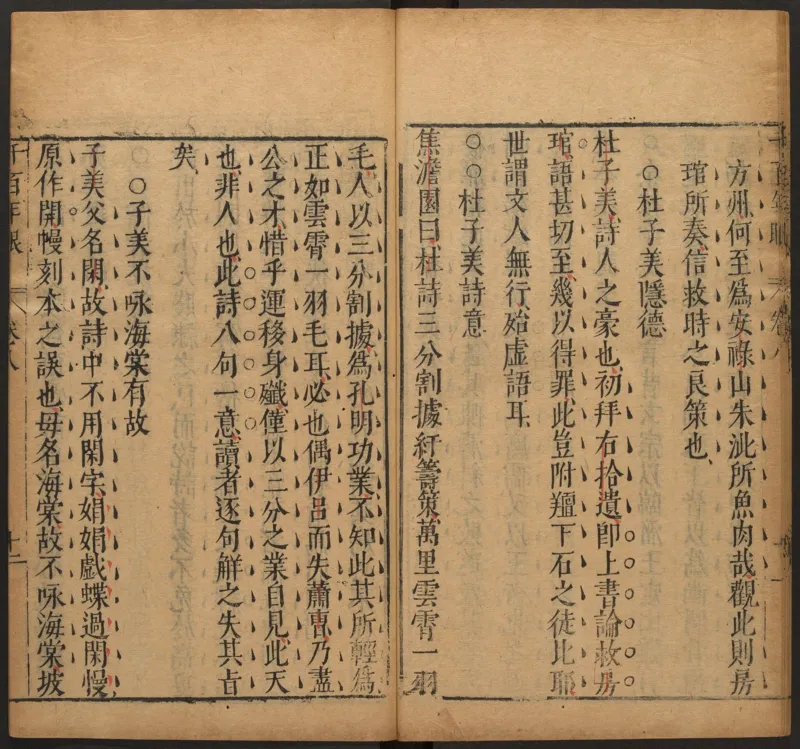 方州何至爲安祿山朱泚所魚肉哉觀此則房
琯所奏信救時之良策也
○杜子美隱德
杜子美詩人之豪也初拜右拾遺卽上書論救房
琯語甚切至幾以得罪此豈附羶下石之徒比耶
世謂文人無行殆虛語耳
○○杜子美詩意
焦澹園曰杜詩三分割據紆籌策萬里雲霄一羽
毛人以三分割據爲孔明功業不知此其所輕爲
正如雲霄一羽毛耳必也偶伊呂而失蕭曹乃盡
公之才惜乎運移身殲僅以三分之業自見此天
也非人也此詩八句一意讀者逐句解之失其旨
矣
○○子美不咏海棠有故
子美父名閑故詩中不用閑字娟娟戱蝶過閑幔
原作開幔刻本之誤也毋名海棠故不咏海棠坡
千百年眼 卷八 十二